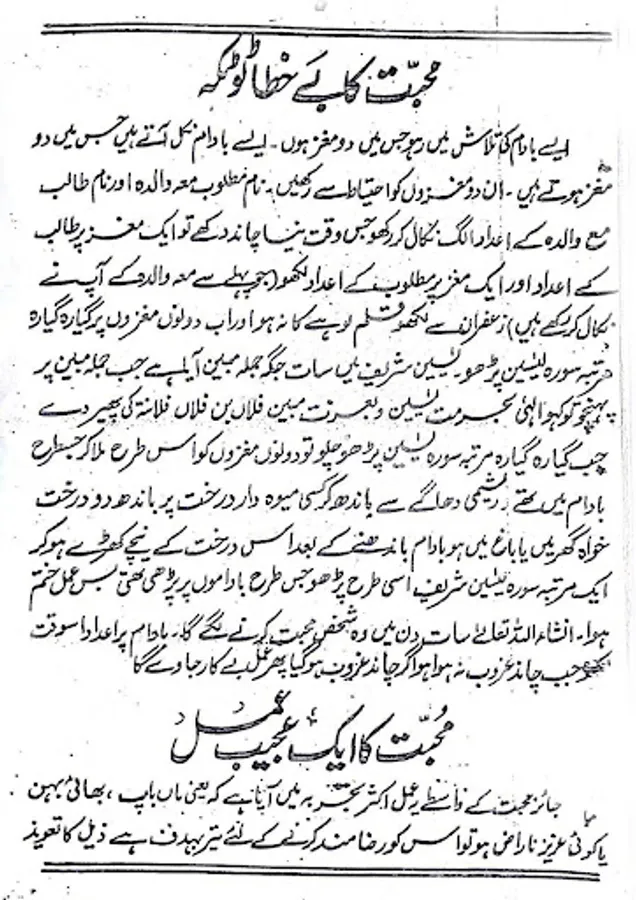 محبّت کا بے خطا ٹوٹکہ
ایسے بادام کی تلاش میں رہو جس میں دو مغز ہوں۔ ایسے بادام نکل آتے ہیں جس میں دو
مغز ہوتے ہیں۔ ان دو مغزوں کو احتیاط سے رکھیں۔ نام مطلوب معہ والدہ اور نام طالب
مع والدہ کے اعداد الگ نکال کر رکھو جس وقت نیا چاند دکھے تو ایک مغز پر طالب
کے اعداد اور ایک مغز پر مطلوب کے اعداد لکھو (جو پہلے سے معہ والدہ کے آپ نے
نکال کر رکھے ہیں) زعفران سے لکھو قلم لوہے کا نہ ہو اور اب دونوں مغزوں پر گیارہ گیارہ
مرتبہ سورہ یٰسین پڑھو یٰسین شریف میں سات جگہ جملہ مبین آیا ہے جب جملہ مبین پر
پہنچو تو کہو الٰہی بحرمت یٰسین و بعزت مبین فلاں بن فلاں فلانۃ کی پھیر دے
جب گیارہ گیارہ مرتبہ سورہ یٰسین پڑھ چلو تو دونوں مغزوں کو اس طرح ملا کر جسطرح
بادام میں تھے ریشمی دھاگے سے باندھ کر کسی میوہ دار درخت پر باندھ دو درخت
خواہ گھر میں یا باغ میں ہو بادام باندھنے کے بعد اس درخت کے نیچے کھڑے ہو کر
ایک مرتبہ سورہ یٰسین شریف اسی طرح پڑھو جس طرح باداموں پر پڑھی تھی بس عمل ختم
ہوا۔ انشاء اللہ تعالیٰ سات دن میں وہ شخص محبت کرنے لگے گا۔ بادام پر اعداد اسوقت
لکھو جب چاند غروب نہ ہوا ہو اگر چاند غروب ہو گیا پھر عمل بے کار جاوے گا
مُحبّت کا ایک عجیب عمل
جائز محبت کے واسطے یہ عمل اکثر تجربہ میں آیا ہے کہ یعنی ماں باپ، بھائی بہن
یا کوئی عزیز ناراض ہو تو اس کو رضامند کرنے کے لئے تیر بہدف ہے ذیل کا تعویذ